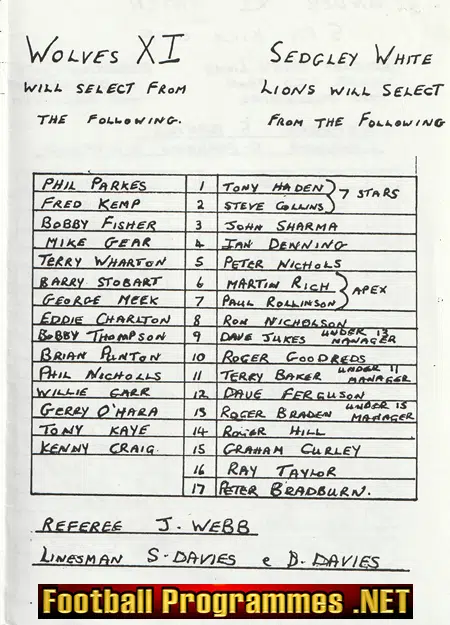 WOLVES XI
WILL SELECT FROM
THE FOLLOWING.
SEDGLEY WHITE
LIONS WILL SELECT
FROM THE FOLLOWING
PHIL PARKES 1 TONY HADEN
FRED KEMP 2 STEVE COLLINS
7 STARS
BOBBY FISHER 3 JOHN SHARMA
MIKE GEAR 4 IAN DENNING
TERRY WHARTON 5 PETER NICHOLS
BARRY STOBART 6 MARTIN RICH
GEORGE MEEK 7 PAUL ROLLINSON
APEX
EDDIE CHARLTON 8 RON NICHOLSON
BOBBY THOMPSON 9 DAVE JUKES UNDER 13 MANAGER
BRIAN PUNTON 10 ROGER GOODREDS
PHIL NICHOLLS 11 TERRY BAKER UNDER 11 MANAGER
WILLIE CARR 12 DAVE FERGUSON
GERRY O'HARA 13 ROGER BRADEN UNDER 15 MANAGER
TONY KAYE 14 ROGER HILL
KENNY CRAIG. 15 GRAHAM CURLEY
16 RAY TAYLOR
17 PETER BRADBURN.
REFEREE J. WEBB
LINESMAN S. DAVIES e B. DAVIES
Football Programmes .NET